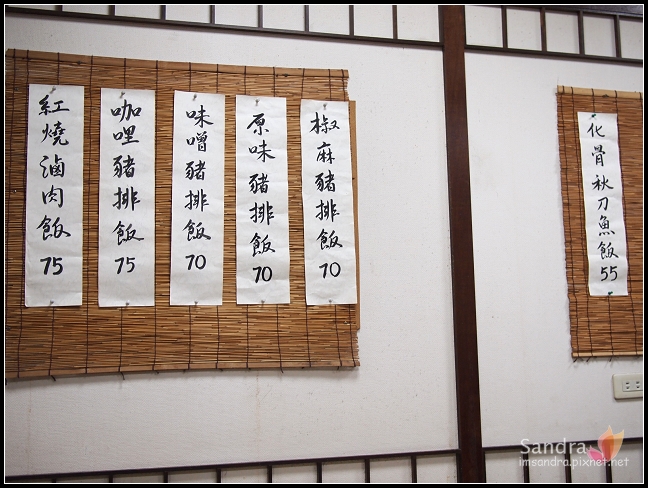 紅燒滷肉飯 75
咖哩豬排飯 75
味噌豬排飯 70
原味豬排飯 70
椒麻豬排飯 70
化骨秋刀魚飯 55
Sandra
imsandra.pixnet.net